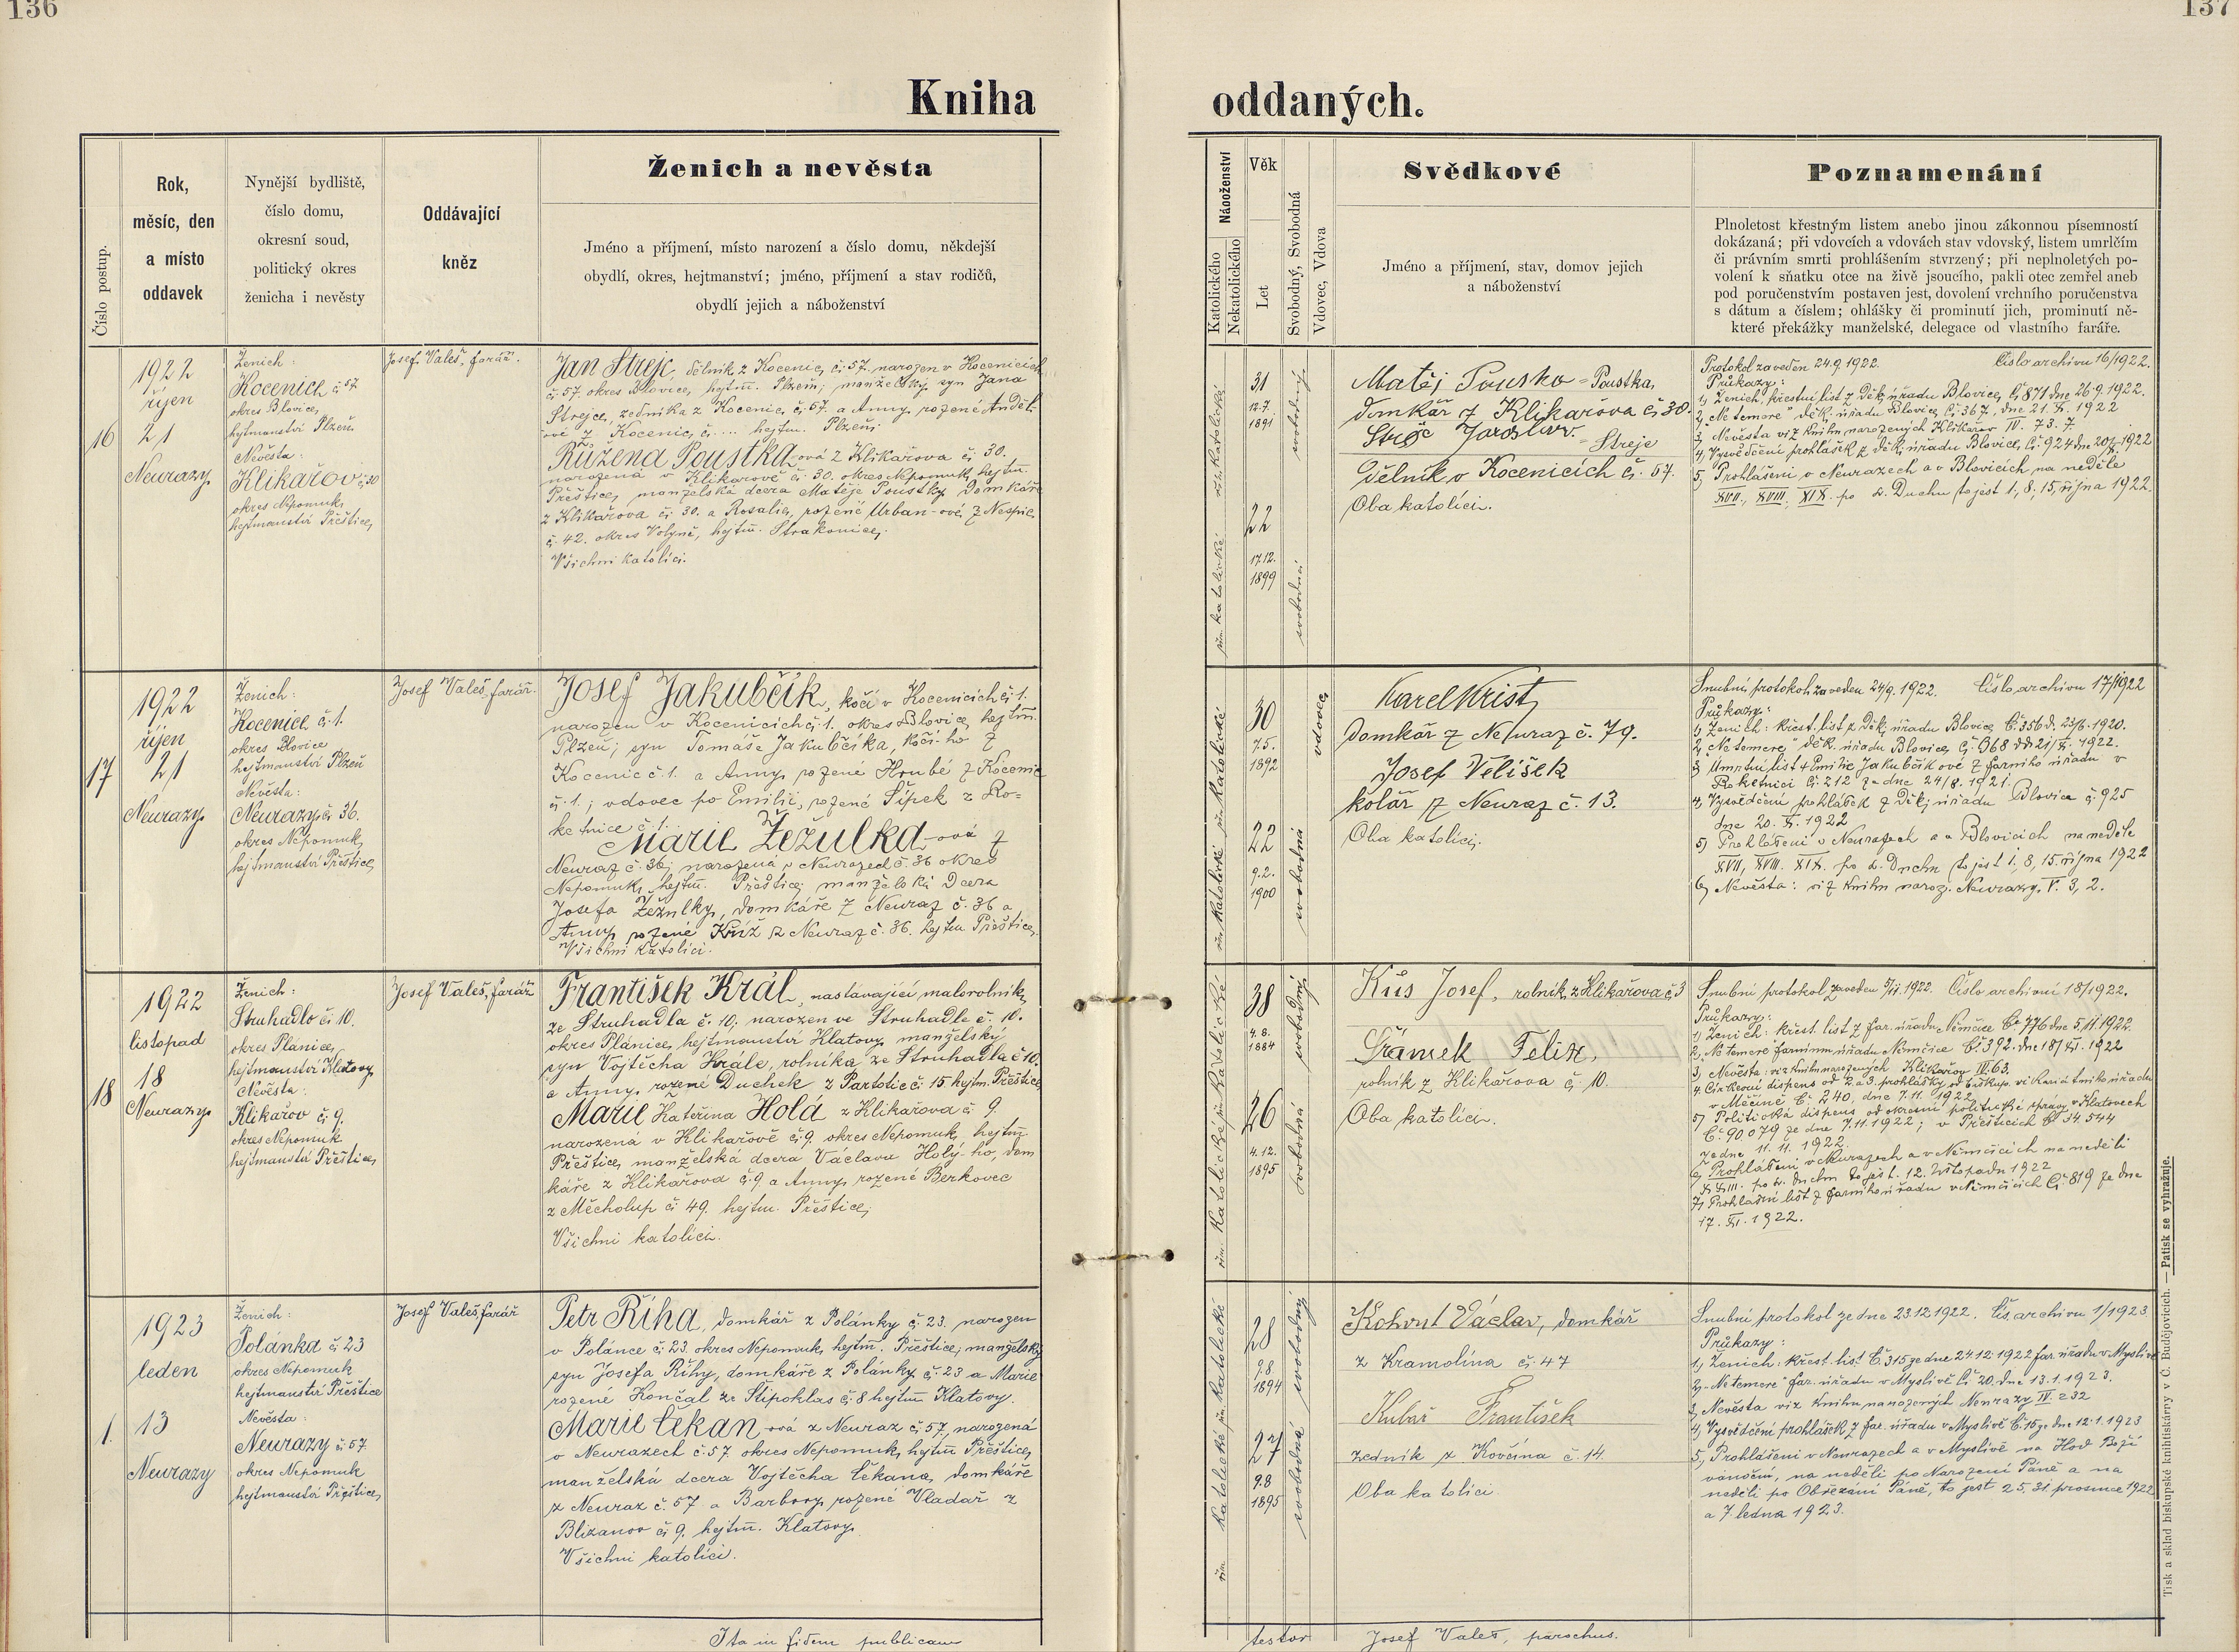 136
137
Kniha
oddaných.
Číslo postup.
Rok,
měsíc, den
a místo
oddavek
Nynější bydliště,
číslo domu,
okresní soud,
politický okres
ženicha i nevěsty
Oddávající
kněz
Ženich a nevěsta
Jméno a příjmení, místo narození a číslo domu, někdejší
obydlí, okres, hejtmanství; jméno, příjmení a stav rodičů,
obydlí jejich a náboženství
Náboženství
Katolického
Nekatolického
Věk
Let
Svobodný, Svobodná
Vdovec, Vdova
Svědkové
Jméno a příjmení, stav, domov jejich
a náboženství
Poznamenání
Plnoletost křestným listem anebo jinou zákonnou písemností
dokázaná; při vdovcích a vdovách stav vdovský, listem umrlčím
či právním smrti prohlášením stvrzený; při neplnoletých po-
volení k sňatku otce na živě jsoucího, pakli otec zemřel aneb
pod poručenstvím postaven jest, dovolení vrchního poručenstva
s dátum a číslem; ohlášky či prominutí jich, prominutí ně-
které překážky manželské, delegace od vlastního faráře.
16
1922
říjen
21
Neurazy
Ženich:
Kocenice č 57
okres Blovice,
hejtmanství Plzeň
Nevěsta:
Klikařov č. 30
okres Nepomuk,
hejtmanství Přeštice,
Josef Valeš, farář.
Jan Strejc, dělník z Kocenic, č. 57. narozen v Kocenicích
č. 57. okres Blovice, hejtm. Plzeň; manželský syn Jana
Strejce, zedníka z Kocenic, č. 57. a Anny, rozené Anděl-
ové z Kocenic, č. ... hejtm. Plzeň;
Růžena Poustka-ová z Klikařova č. 30.
narozená v Klikařově č. 30. okres Nepomuk, hejtm.
Přeštice, manželská dcera Matěje Poustky, domkáře
z Klikařova č. 30. a Rosalie, rozené Urban-ové, z Nespic
č. 42. okres Volyně, hejtm. Strakonice,
Všichni katolíci.
řím. katolické
31
12.7.
1891
svobodný
řím. katolické
22
17.12.
1899
svobodná
Matěj Pousko = Poustka,
domkář z Klikařova č. 30.
Strejc Jaroslav. = Strejc
dělník v Kocenicích č. 57.
Oba katolíci.
Protokol zaveden 24.9.1922. Číslo archivu 16/1922.
Průkazy:
1, Ženich, křestní list z Děk. úřadu Blovice, č. 871 dne 26.9.1922.
2, "Ne temere" děk. úřadu Blovice, č. 367, dne 21. X. 1922
3, Nevěsta viz knihu narozených Klikařov IV. 73. 7
4, Vysvědčení prohlášek z děk. úřadu Blovice, č. 924 dne 20/X. 1922
5, Prohlášeni v Neurazech a v Blovicích na neděle
XVII., XVIII, XIX. po sv. Duchu to jest 1, 8, 15, října 1922.
17
1922
říjen
21
Neurazy
Ženich:
Kocenice č. 1.
okres Blovice
hejtmanství Plzeň
Nevěsta:
Neurazy č. 36.
okres Nepomuk,
hejtmanství Přeštice,
Josef Valeš, farář.
Josef Jakubčík, kočí v Kocenicích č. 1.
narozen v Kocenicích č. 1. okres Blovice, hejtm.
Plzeň; syn Tomáše Jakubčíka, kočí-ho z
Kocenic č. 1. a Anny, rozené Hrubé z Kocenic
č. 1.; vdovec po Emilii, rozené Šípek z Ro-
ketnice č. 1.
Marie Žežulka-ová z
Neuraz č. 36; narozená v Neurazech č. 36 okres
Nepomuk, hejtm. Přeštice; manželská dcera
Josefa Žežulky, domkáře z Neuraz č. 36 a
Anny rozené Kříž z Neuraz č. 36. hejtm. Přeštice.
Všichni katolíci.
řím. katolické
30
7.5.
1892
vdovec
řím. katolické
22
9.2.
1900
svobodná
Karel Krist,
domkář z Neuraz č. 79.
Josef Velíšek
kolář z Neuraz č. 13.
Oba katolíci.
Snubní protokol zaveden 24/9. 1922. Číslo archivu 17/1922
Průkazy:
1, Ženich: křest. list z Děk. úřadu Blovice, č. 356 d. 23/6. 1920.
2, "Ne temere" děk. úřadu Blovice, č. 368 dd 21/X. 1922.
3 Úmrtní list † Emilie Jakubčíkové z farního úřadu v
Roketnici č. 212 ze dne 24/8. 1921.
4, Vysvědčení prohlášek z Děk. úřadu Blovice č. 925
dne 20. X. 1922
5, Prohlášeni v Neurazech a v Blovicích na neděle
XVII, XVIII. XIX. po sv. Duchu to jest 1, 8, 15. října 1922
6, Nevěsta: viz knihu naroz. Neurazy, V. 3, 2.
18
1922
listopad
18
Neurazy
Ženich:
Struhadlo č. 10.
okres Plánice,
hejtmanství Klatovy
Nevěsta:
Klikařov č. 9.
okres Nepomuk
hejtmanství Přeštice,
Josef Valeš, farář
František Král, nastávající malorolník,
ze Struhadla č. 10; narozen ve Struhadle č. 10.
okres Plánice, hejtmanství Klatovy, manželský
syn Vojtěcha Krále, rolníka ze Struhadla č 10.
a Anny, rozené Duchek z Partoltic č. 15 hejtm. Přeštice,
Marie Kateřina Holá z Klikařova č. 9.
narozená v Klikařově č. 9. okres Nepomuk, hejtm.
Přeštice, manželská dcera Václava Holý-ho, dom
káře z Klikařova č. 9 a Anny, rozené Berkovec
z Měcholup č. 49. hejtm. Přeštice;
Všichni katolíci.
řím. katolické
38
4.8.
1884
svobodný
řím. katolické
26
4.12.
1895
svobodná
Kůs Josef, rolník, z Klikařova č. 3
Šrámek Felix,
rolník z Klikařova č. 10.
Oba katolíci.
Snubní protokol zaveden 5/11. 1922. Číslo archivu 18/1922.
Průkazy:
1, Ženich: křest. list z far. úřadu Němčice č. 776 dne 5.11.1922.
2, "Ne temere" farnímu úřadu Němčice č. 392. dne 18/XI. 1922
3, Nevěsta: viz knihu narozených Klikařov IV. 63.
4. Církevní dispens od 2 a 3. prohlášky od biskup. vikariátního úřadu
v Měčíně č. 240, dne 7.11.1922
5, Politická dispens od okresní politické správy v Klatovech
č. 90.079 ze dne 7.11.1922; v Přešticích č. 34.544
ze dne 11.11.1922.
6, Prohlášeni v Neurazech a v Němčicích na neděli
XXIII. po sv. Duchu to jest. 12. listopadu 1922
7, Prohlašní list z farního úřadu v Němčicích č. 819 ze dne
17. XI. 1922.
1.
1923
leden
13
Neurazy
Ženich:
Polánka č. 23
okres Nepomuk
hejtmanství Přeštice
Nevěsta:
Neurazy č. 57.
okres Nepomuk
hejtmanství Přeštice,
Josef Valeš, farář
Petr Říha, domkář z Polánky č. 23. narozen
v Polánce č. 23. okres Nepomuk, hejtm. Přeštice, manželský
syn Josefa Říhy, domkáře z Polánky č. 23 a Marie
rozené Končal ze Štipoklas č. 8 hejtm Klatovy.
Marie Čekan-ová z Neuraz č. 57, narozená
v Neurazech č. 57. okres Nepomuk, hejtm Přeštice,
manželská dcera Vojtěcha Čekana, domkáře
z Neuraz č. 57 a Barbory, rozené Vladař z
Blizanov č. 9. hejtm. Klatovy.
Všichni katolíci.
řím. katolické
28
9.8
1894
svobodný
řím. katolické
27
9.8
1895
svobodná
Kohout Václav, domkář
z Kramolína č. 47
Kubař František
zedník z Kovčína č. 14.
Oba katolíci.
Snubní protokol ze dne 23.12.1922. Čís. archivu 1/1923
Průkazy:
1, Ženich: křest. list č. 315 ze dne 24.12.1922 far. úřadu v Myslivě
2, "Ne temere" far. úřadu v Myslivě č. 20. dne 13.1.1923.
3, Nevěsta viz knihu narozených Neurazy IV. 232
4, Vysvědčení prohlášek z far. úřadu v Myslivě č. 15 ze dne 12.1.1923
5, Prohlášeni v Neurazech a v Myslivě na Hod Boží
vánoční, na neděli po Narození Páně a na
neděli po Obřezání Páně, to jest 25. 31. prosince 1922
a 7 ledna 1923.
Ita in fidem publicam
testor Josef Valeš, parochus.
Tisk a sklad biskupské knihtiskárny v Č. Budějovicích. — Patisk se vyhražuje.